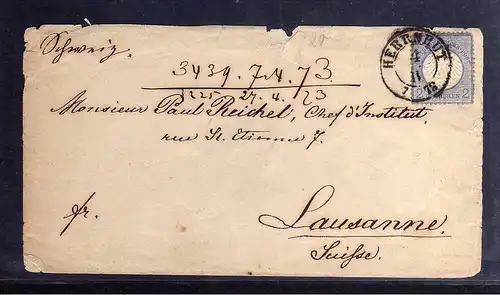 Schweiz.
HERRNHUT
3439. 7.4. 73.
1225 27. 4. 73
2
Monsieur Paul Reichel, Chef d'Institut,
rue St. Etienne 7.
fr.
Lausanne.
Suisse.